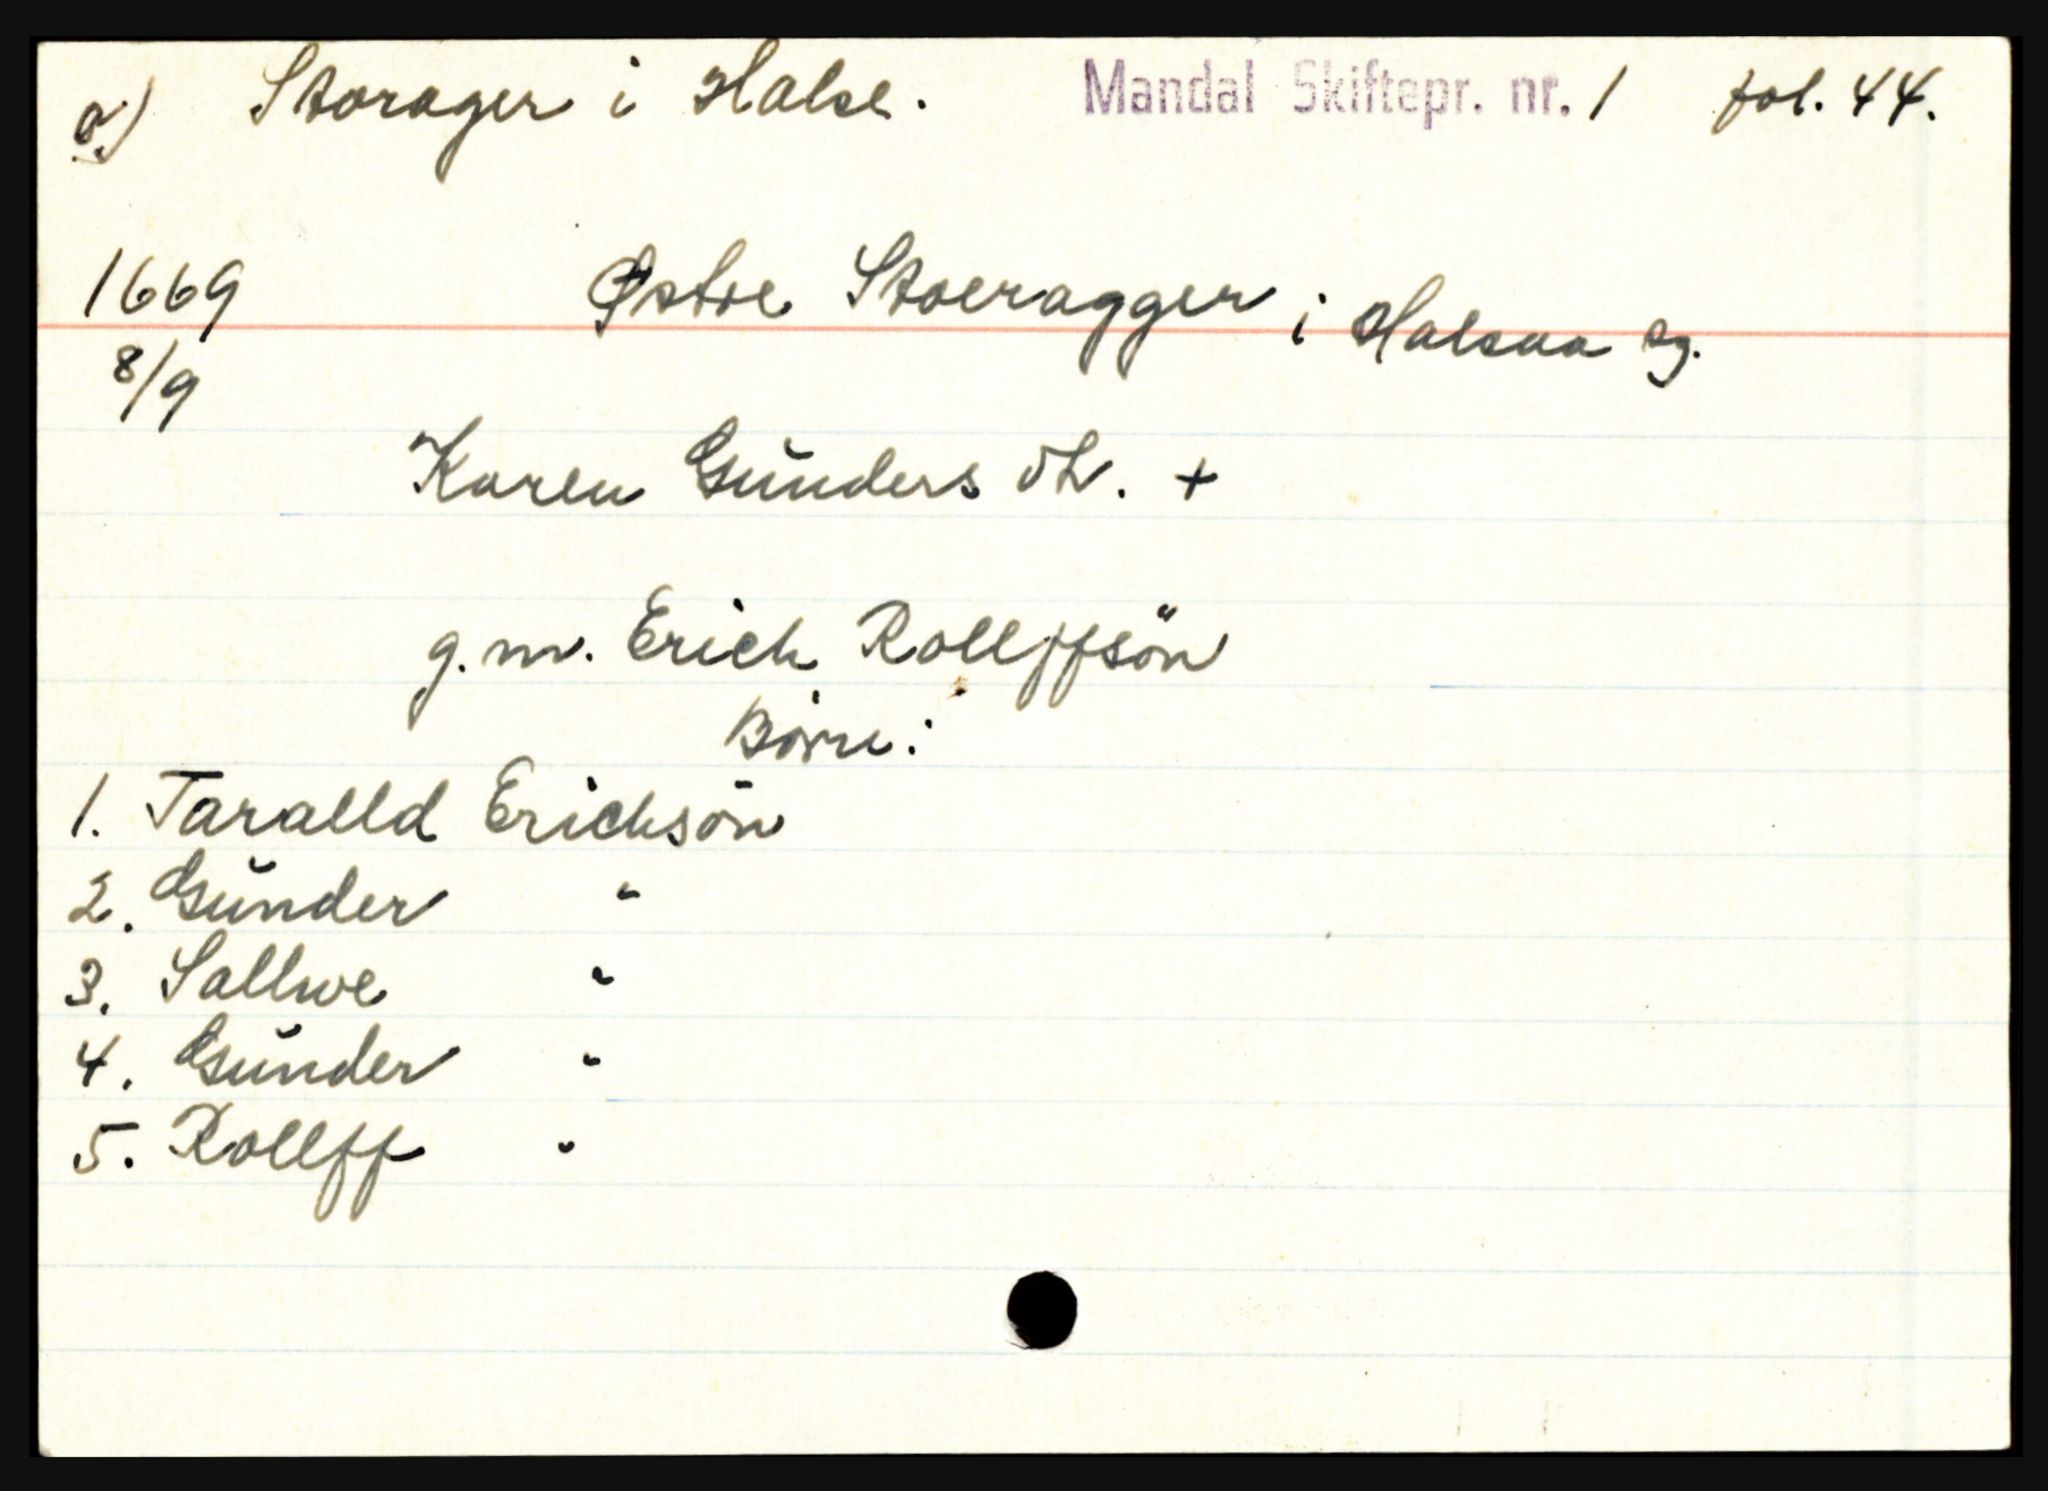 a) Storager i Halse. Mandal Skiftepr. nr. 1 fol. 44.
1669 Østre Stoeragger i Halsaa sg.
8/9
Karen Gŭnders dt. +
g. m. Erich Rollffsön
Børn:
1. Taralld Erichsön
2. Gŭnder "
3. Sallwe "
4. Gŭnder "
5. Rollff "